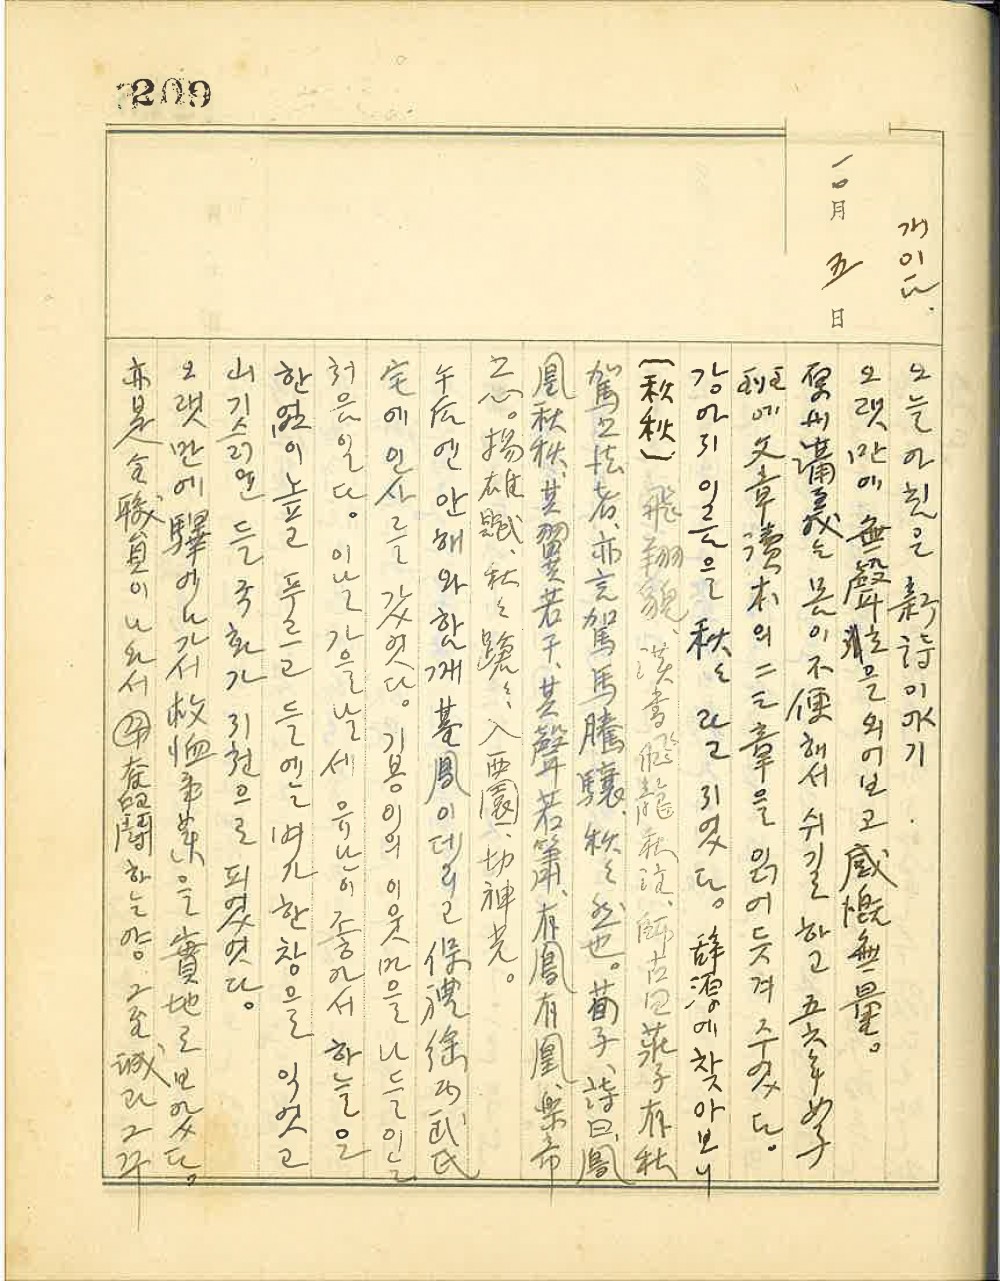 209
개이다.
一〇月 五 日
오늘아침은 新詩이야기.
오랫만에 無聲出을외어보고 感慨無量。
오는 몸이 不便해서 쉬길하고 五六年女子
班에 文章讀本의 一二章을 읽어듯겨주었다。
강아지 이름으로 秋々 라고 지었다。辭源에 찾아보니
(秋秋) 飛翔貌、漢書 飛龍秋注、師古曰莊子有秋
駕之法者、亦言駕馬騰驤、秋々然也。荀子、詩曰、鳳
凰秋秋、其翼若干、其聲若簫、有鳳有凰、樂帝
之心。揚雄賦、秋々蹌々、入西園、切神光。
午后엔 안해와함께 데리고 保
宅에 인사를 갔엇다。 이웃 나들이는
처음이다。이날 가을날세 유난이 좋아서 하늘은
한없이높고 푸르고 들엔 벼가 한창을 익엇고
山기슭엔 들국화가 지천으로 피었엇다。
오랫만에 驛에나가서 救恤事業을 實地로보았다。
亦是 全職員이 나와서 奮鬪하는양、그至誠과 그